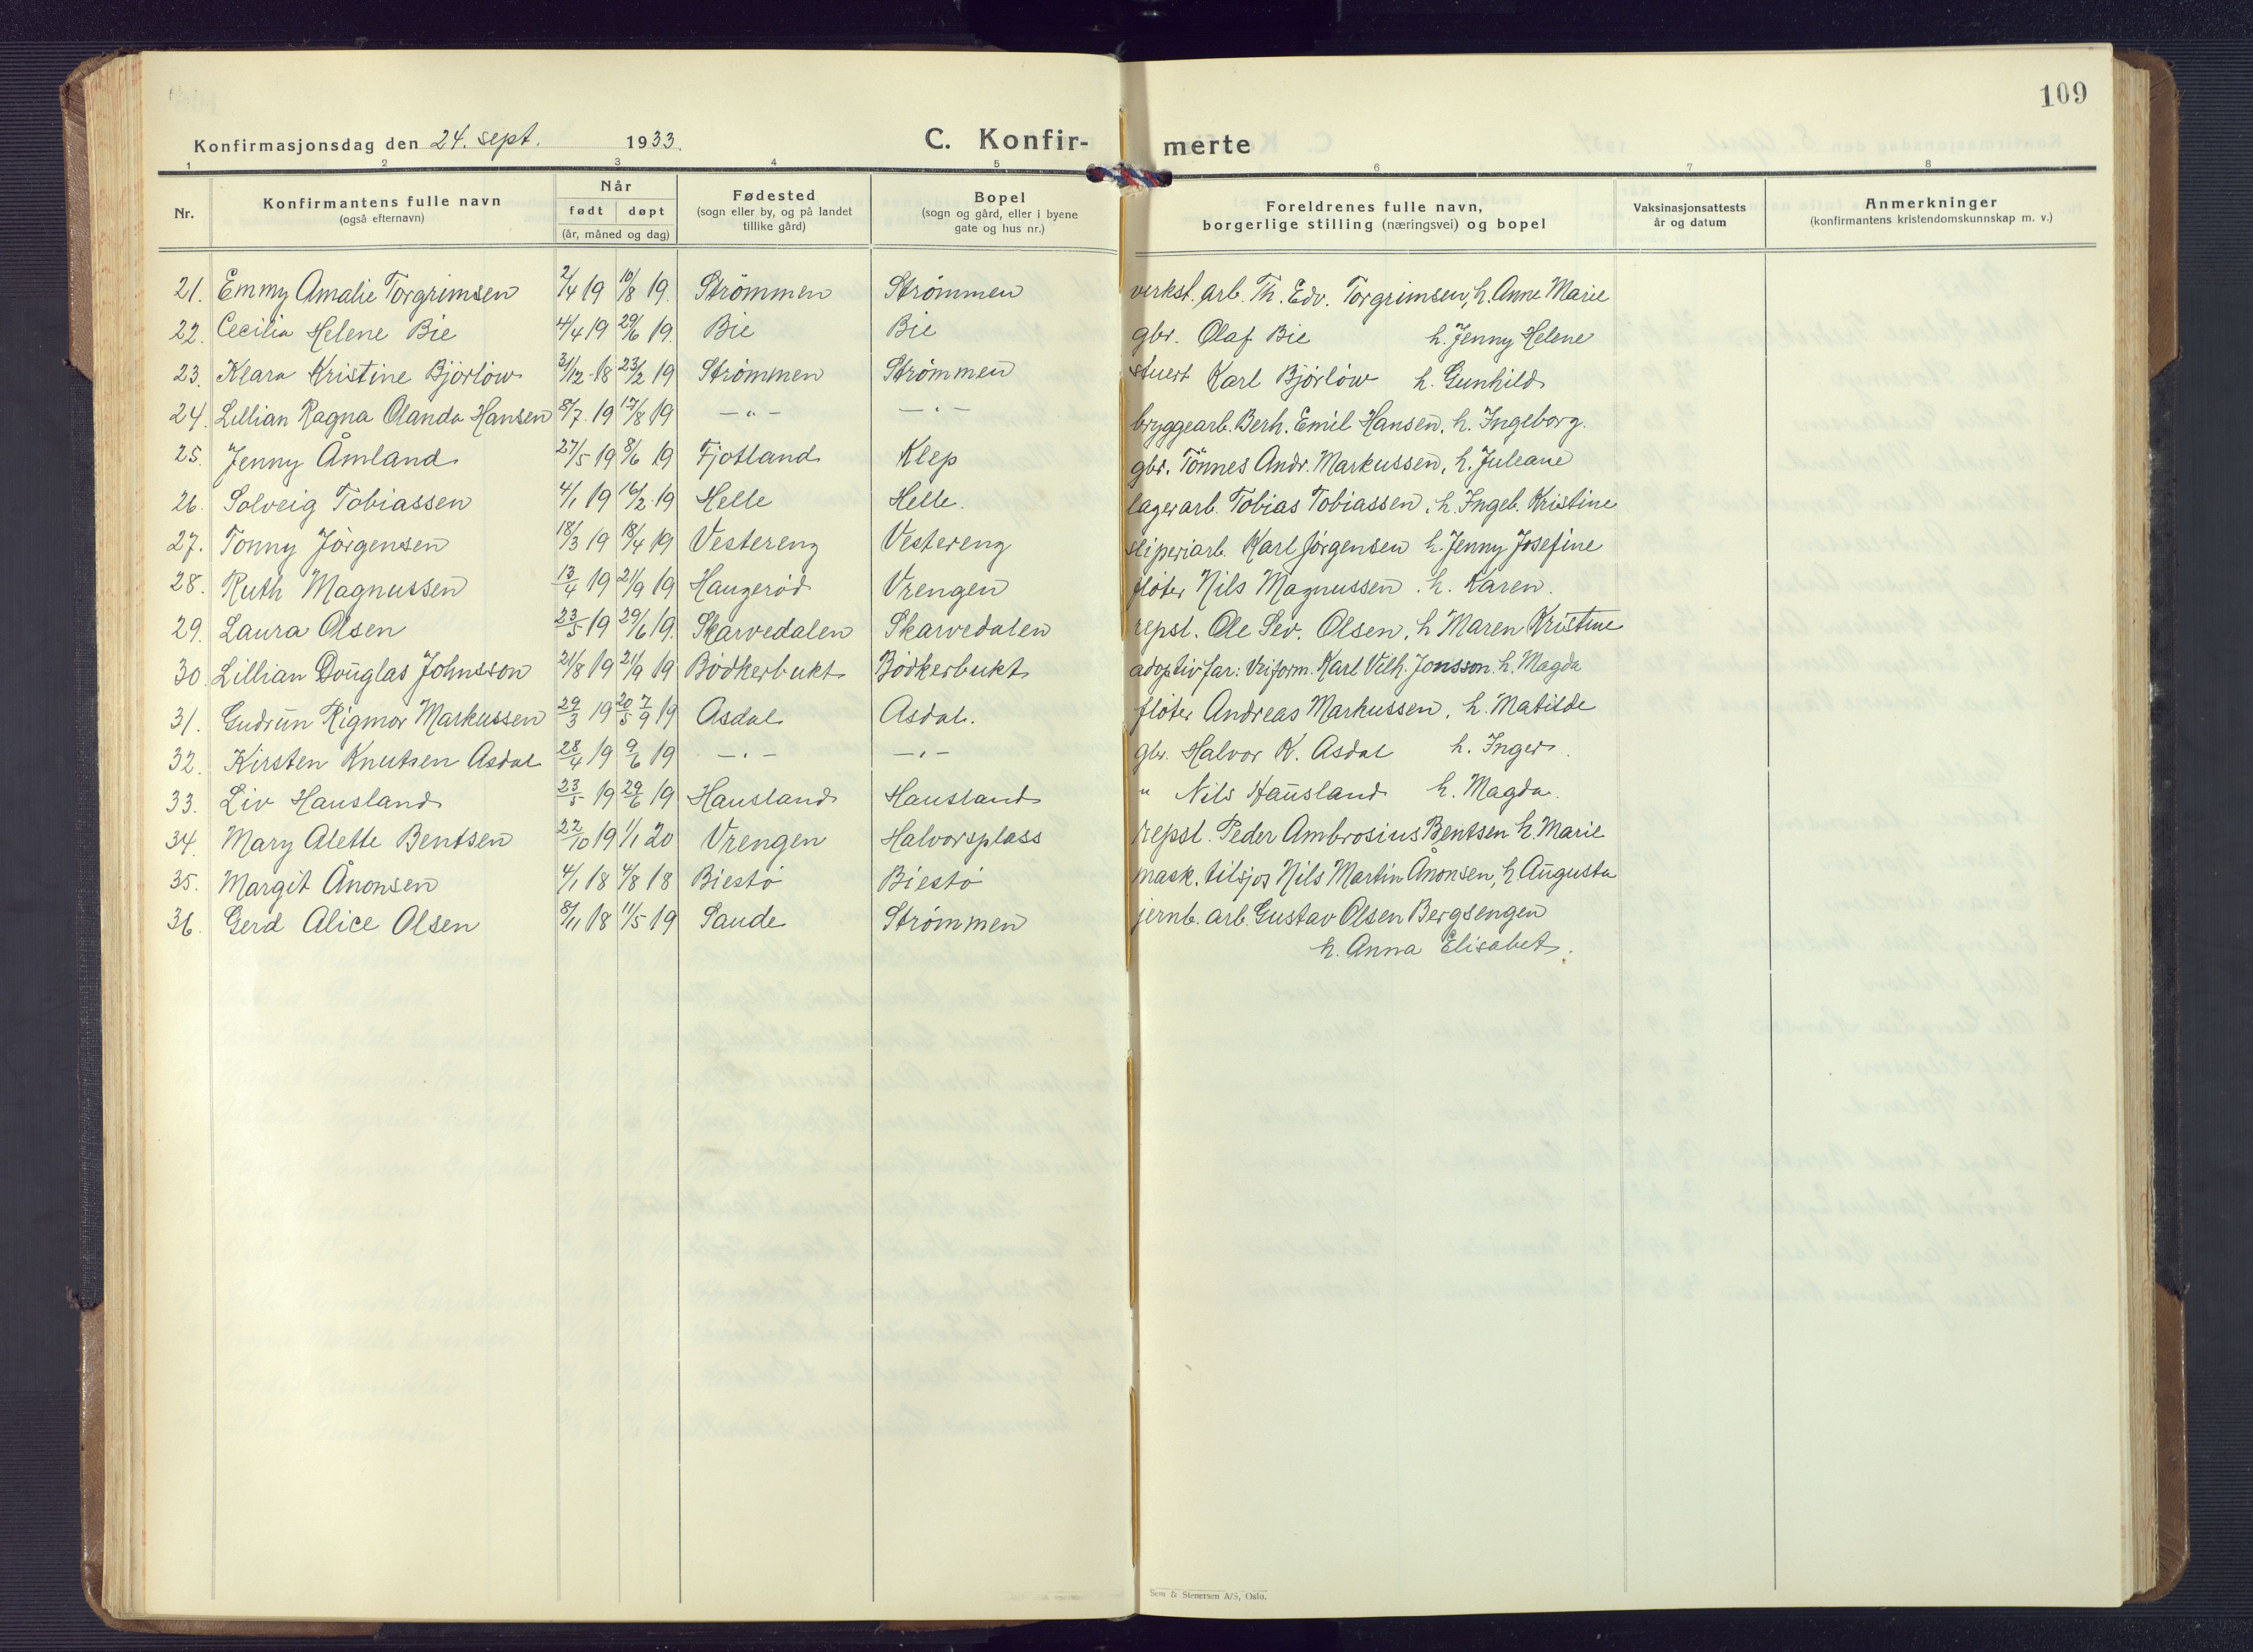 109
Konfirmasjonsdag den 24. sept. 1933. C. Konfir- merte
1 2 3 4 5 6 7 8
Nr. Konfirmantens fulle navn (også efternavn) Når født døpt (år, måned og dag) Fødested (sogn eller by, og på landet tillike gård) Bopel (sogn og gård, eller i byene gate og hus nr.) Foreldrenes fulle navn, borgerlige stilling (næringsvei) og bopel Vaksinasjonsattests år og datum Anmerkninger (konfirmantens kristendomskunnskap m. v.)
21. Emmy Amalie Torgrimsen 2/4 19 10/8 19. Strømmen Strømmen verkst. arb. Th. Edv. Torgrimsen, h. Anne Marie
22. Cecilia Helene Bie 4/4 19 29/6 19. Bie Bie gbr. Olaf Bie h. Jenny Helene
23. Klara Kristine Bjørløw 31/12 18 23/2 19 Strømmen Strømmen stuert Karl Bjørløw h. Gunhild
24. Lillian Ragna Olanda Hansen 8/7 19 17/8 19 —„— —„— bryggearb. Berh. Emil Hansen, h. Ingeborg.
25. Jenny Åmland 27/5 19 8/6 19 Fjotland Klep gbr. Tønnes Andr. Markussen, h. Juleane
26. Solveig Tobiassen 4/1 19 16/2 19 Helle Helle. lagerarb. Tobias Tobiassen, h. Ingeb. Kristine
27. Tonny Jørgensen 18/3 19 18/4 19 Vestereng Vestereng sliperiarb. Karl Jørgensen h. Jenny Josefine
28. Ruth Magnussen 13/4 19 21/9 19 Haugerød Vrengen fløter Nils Magnussen. h. Karen.
29. Laura Olsen 23/5 19 29/6 19. Skarvedalen Skarvedalen repsl. Ole Sev. Olsen, h. Maren Kristine
30. Lillian Douglas Johnsson 21/8 19 21/9 19 Bødkerbukt Bødkerbukt adoptivfar: Veiform. Karl Vilh. Jonsson h. Magda
31. Gudrun Rigmor Markussen 29/3 19 20/5 7/9 19 Asdal Asdal. fløter Andreas Markussen, h. Matilde
32. Kirsten Knutsen Asdal 28/4 19 9/6 19 —„— —„— gbr. Halvor K. Asdal h. Inger.
33. Liv Hausland 23/5 19 29/6 19 Hausland Hausland " Nils Hausland h. Magda.
34. Mary Alette Bentsen 22/10 19 1/1 20 Vrengen Halvorsplass repsl. Peder Ambrosius Bentsen h. Marie
35. Margit Ånonsen 4/1 18 4/8 18 Biestø Biestø mask. tilsjos Nils Martin Ånonsen, h. Augusta
36. Gerd Alice Olsen 8/11 18 11/5 19 Saude Strømmen jernb. arb. Gustav Olsen Bergsengen
h. Anna Elisabet.
Sem & Stenersen A/S, Oslo.